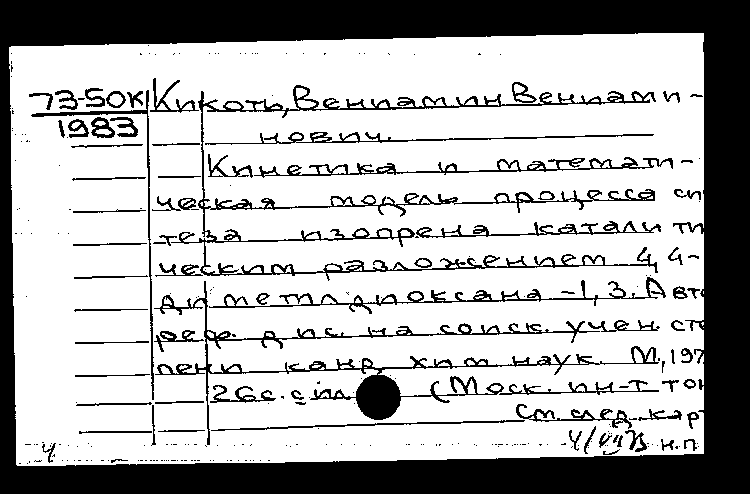 73-50К
1983
Кикоть, Вениамин Вениами-
нович.
Кинетика и математи-
ческая модель процесса син
теза изопрена каталити
ческим разложением 4,4-
диметилдиоксана-1,3. Авто
реф. дис. на соиск. учен. сте
пени канд. хим наук. М, 197
26с. с ил (Моск. ин-т тон
См. след. карт
н.п
Ч